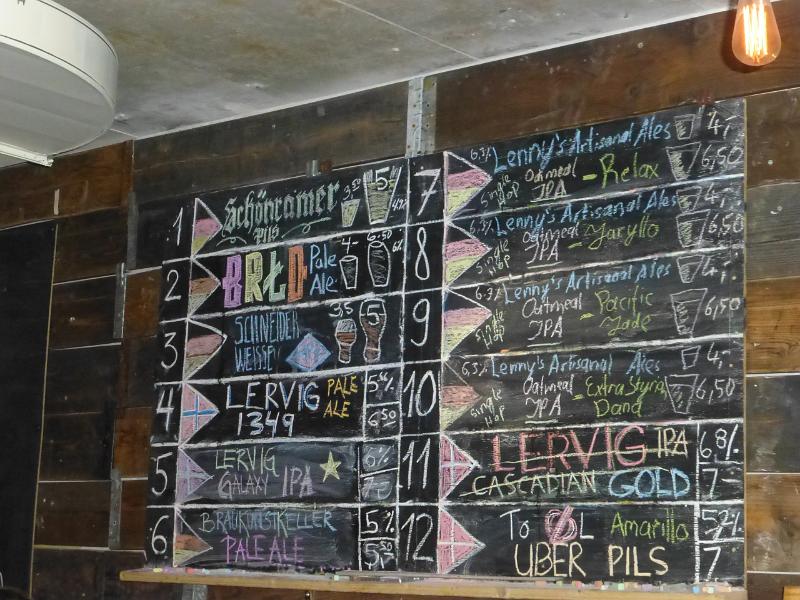 1
Schönramer
Pils
3,50
5,-
2
BRŁO
Pale
Ale
4,-
6,50
6%
3
SCHNEIDER
WEISSE
3,5
5
4
LERVIG
1349
PALE
ALE
6,50
5
LERVIG
GALAXY IPA
6%
6
BRAUKUNSTKELLER
PALE ALE
5%
7
6,3%
Lenny's Artisanal Ales
4,-
Single
Hop
Oatmeal
IPA
- Relax
6,50
8
Lenny's Artisanal Ales
4,-
Single
Hop
Oatmeal
IPA
- Jaryllo
6,50
9
6,3%
Lenny's Artisanal Ales
4,-
Single
Hop
Oatmeal
IPA
- Pacific
Jade
6,50
10
6,3%
Lenny's Artisanal Ales
4,-
Single
Hop
Oatmeal
IPA
- Extra Styrian
Dand
6,50
11
LERVIG IPA
CASCADIAN GOLD
6,8%
7-
12
To ØL Amarillo
UBER PILS
5,2%
7